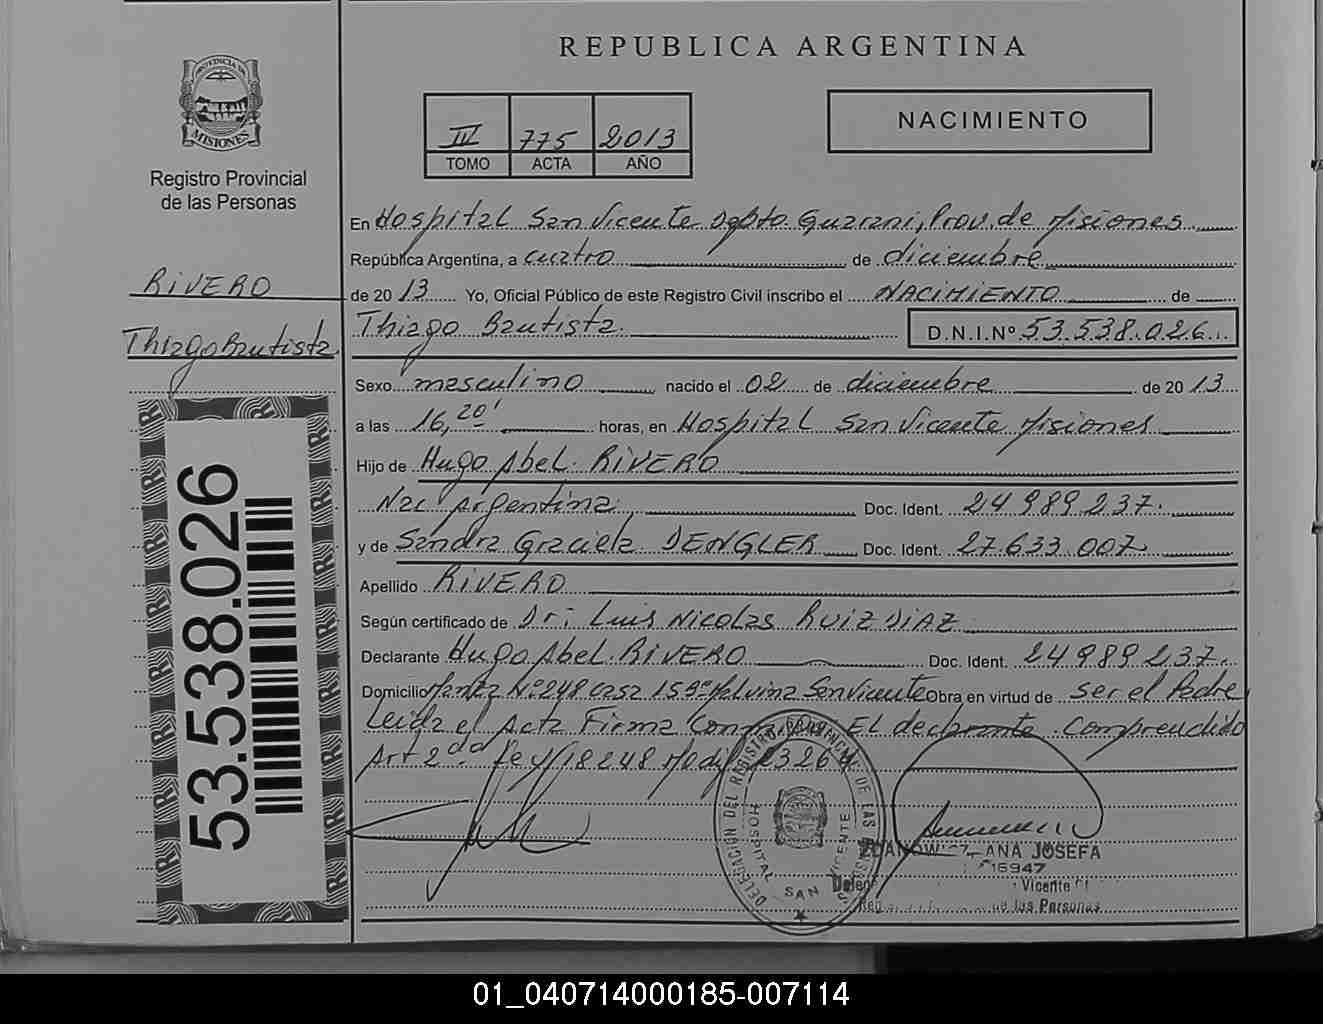 REPUBLICA ARGENTINA
PROVINCIA DE MISIONES
Registro Provincial
de las Personas
IV 775 2013
TOMO ACTA AÑO
NACIMIENTO
RIVERO
Thiago Bautista
53.538.026
En Hospital San Vicente Dpto. Guarani, Prov. de Misiones
República Argentina, a cuatro de diciembre
de 2013 Yo, Oficial Público de este Registro Civil inscribo el NACIMIENTO de
Thiago Bautista. D.N.I.Nº 53.538.026
Sexo masculino nacido el 02 de diciembre de 2013
a las 16,20' horas, en Hospital San Vicente Misiones
Hijo de Hugo Abel RIVERO
Nac Argentina Doc. Ident. 24 989 237.
y de Sandra Graciela DENGLER Doc. Ident. 27 633 007
Apellido RIVERO
Según certificado de Dr: Luis Nicolas RUIZ DIAZ
Declarante Hugo Abel RIVERO Doc. Ident. 24 989 237.
Domicilio Nº 248 casa 159 San Vicente Obra en virtud de ser el Padre
Leida el Acta Firma El declarante. Comprendido
Art 2º Ley 18248 Modif
DELEGACIÓN DEL REGISTRO PROVINCIAL DE LAS
HOSPITAL SAN VICENTE
ANA JOSEFA
16947
Vicente
de las Personas
01_040714000185-007114